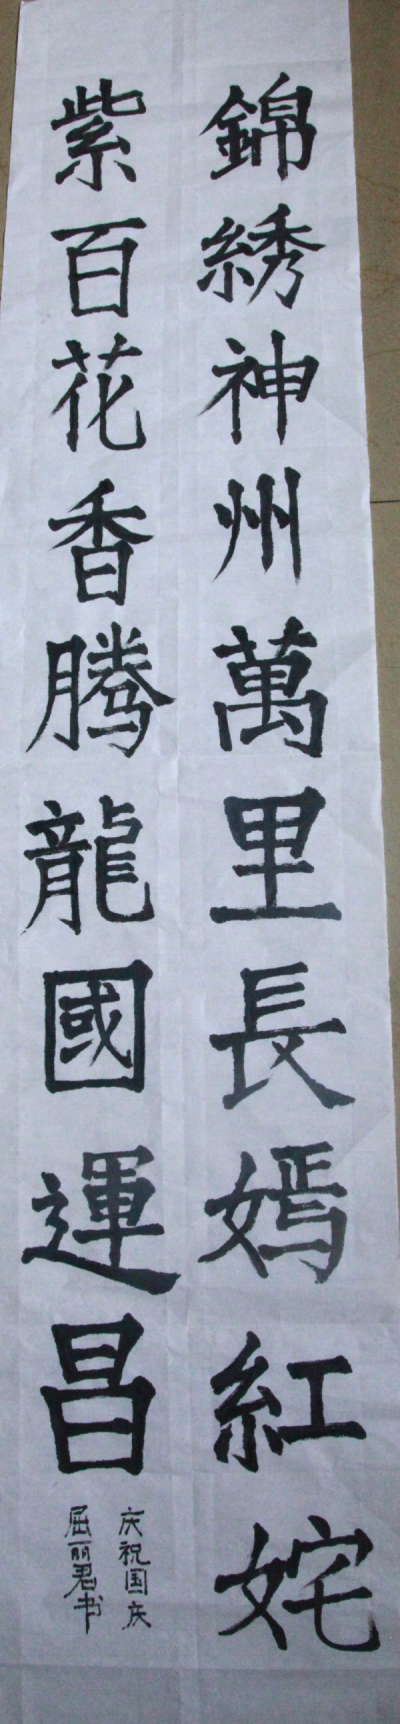 錦綉神州萬里長嫣紅姹
紫百花香腾龍國運昌
庆祝国庆
屈丽君书